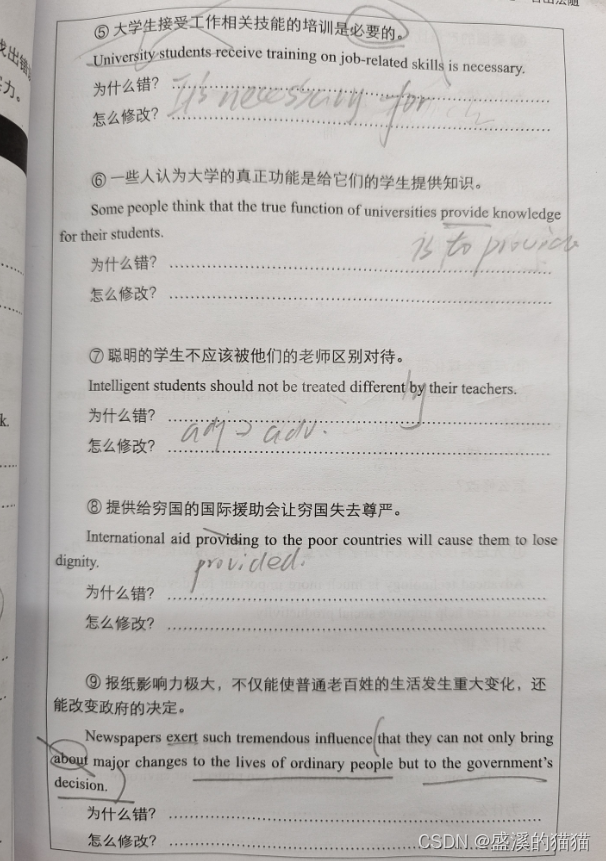 ⑤ 大学生接受工作相关技能的培训是必要的。
University students receive training on job-related skills is necessary.
为什么错?
It's necessary for
怎么修改?
⑥ 一些人认为大学的真正功能是给它们的学生提供知识。
Some people think that the true function of universities provide knowledge
for their students.
is to provide
为什么错?
怎么修改?
⑦ 聪明的学生不应该被他们的老师区别对待。
Intelligent students should not be treated different by their teachers.
ly
为什么错?
怎么修改? adj → adv.
⑧ 提供给穷国的国际援助会让穷国失去尊严。
International aid providing to the poor countries will cause them to lose
dignity.
provided.
为什么错?
怎么修改?
⑨ 报纸影响力极大，不仅能使普通老百姓的生活发生重大变化，还
能改变政府的决定。
Newspapers exert such tremendous influence that they can not only bring
about major changes to the lives of ordinary people but to the government's
decision.
为什么错?
怎么修改?
CSDN @盛溪的猫猫